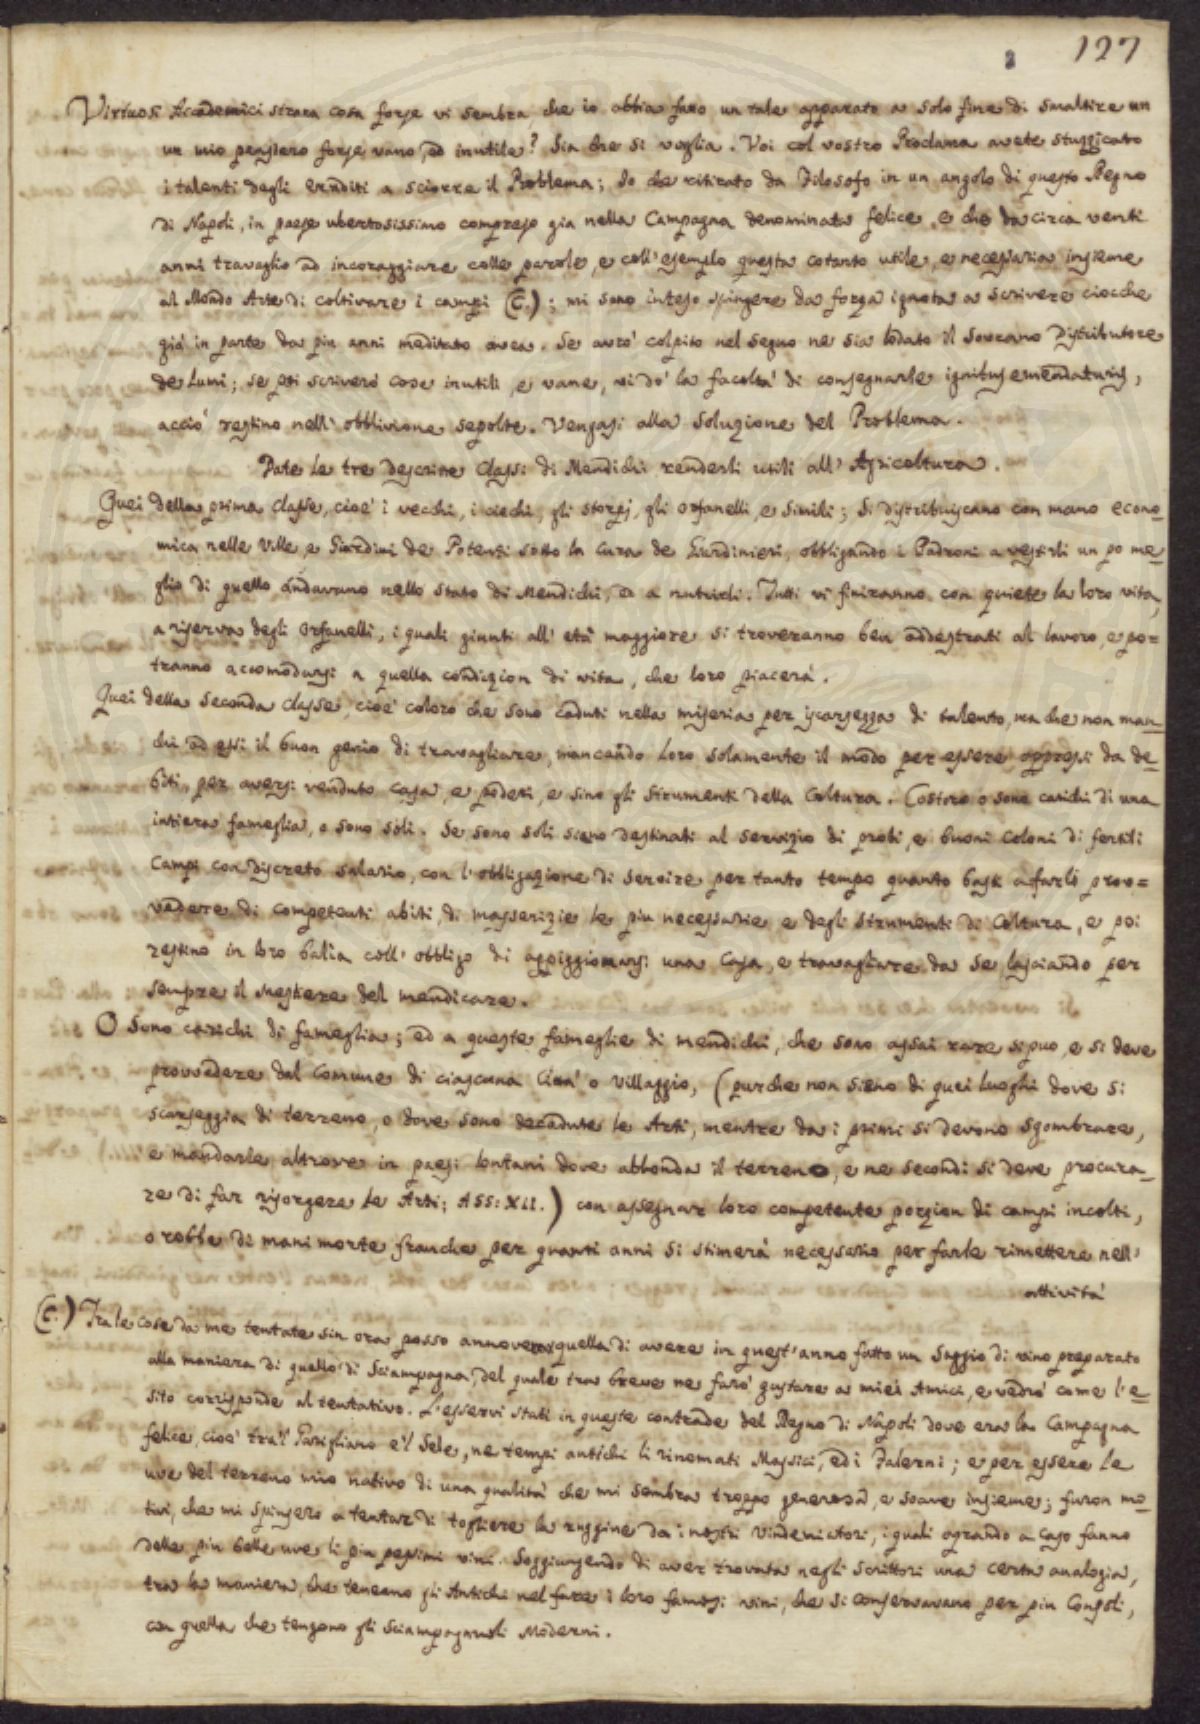 2 127
Virtuosi Accademici strana cosa forse vi sembra, che io abbia fatto un tale apparato a solo fine di smaltire un
un mio pensiero forse vano, ed inutile? Sia che si voglia. Voi col vostro Proclama avete stuzzicato
i talenti degli eruditi a sciorre il Problema; Io che ritirato da Filosofo in un angolo di questo Regno
di Napoli, in paese ubertosissimo compreso gia nella Campagna denominata felice, e che da circa venti
anni travaglio ad incoraggiare colle parole, e coll'esempio questa cotanto utile, e necessaria insieme
al Mondo Arte di coltivare i campi (C.); mi sono inteso spingere da forza ignota a scrivere ciocche
giá in parte da piu anni meditato avea. Se avró colpito nel segno ne sia lodato il Sovrano Distributore
de Lumi; se poi scriveró cose inutili, e vane, vi dó la facoltá di consegnarle ignitus emendaturis,
acció restino nell'obblivione sepolte. Vengasi alla Soluzione del Problema.
Date le tre descritte Classi di Mendichi renderli utili all'Agricoltura.
Quei della prima Classe, cioé i vecchi, i ciechi, gli storpj, gli orfanelli, e simili; Si distribuiscano con mano econo-
mica nelle Ville, e Giardini de Potenti sotto la cura de Giardinieri, obbligando i Padroni a vestirli un po me-
glio di quello andavano nello stato di Mendichi, ed a nutrirli. Tutti vi finiranno con quiete la loro vita,
a riserva degli orfanelli, i quali giunti all'etá maggiore si troveranno ben addestrati al lavoro, e po=
tranno accomodarsi a quella condizion di vita, che loro piacerá.
Quei della seconda Classe, cioé coloro che sono caduti nella miseria per iscarsezza di talento, ma che non man-
chi ad essi il buon genio di travagliare, mancando loro solamente il modo per essere oppressi da de-
biti, per aversi venduto casa, e poderi, e sino gli strumenti della Coltura. Costoro o sono carichi di una
intiera fameglia, o sono soli. Se sono soli sieno destinati al servizio di probi, e buoni Coloni di fertili
Campi con discreto salario, con l'obbligazione di servire per tanto tempo quanto basti a farli prov=
vedere di competenti abiti, di masserizie le piu necessarie e degli strumenti di Coltura, e poi
restino in loro balia coll'obbligo di appiggionarsi una Casa, e travagliare da se lasciando per
sempre il mestiere del mendicare.
O sono carichi di fameglia; ed a queste fameglie di mendichi, che sono assai rare si puo, e si deve
provvedere dal Comune di ciascuna Cittá o Villaggio, (purche non sieno di quei Luoghi dove si
scarseggia di terreno, o dove sono decadute le Arti, mentre da i primi si devono sgombrare,
e mandarle altrove in paesi lontani dove abbonda il terreno, e ne secondi si deve procura-
re di far risorgere le Arti; ASS: XII.) con assegnar loro competente porzion di campi incolti,
o robbe di mani morte franche per quanti anni si stimerá necessario per farle rimettere nell'
attivitá
(C.) Tra le cose da me tentate sin ora posso annoverar quella di avere in quest'anno fatto un saggio di vino preparato
alla maniera di quello di Sciampagna, del quale tra breve ne faró gustare a miei Amici, e vedró come l'e-
sito corrisponde al tentativo. L'esservi stati in queste contrade del Regno di Napoli dove era la Campagna
felice, cioé tra'l Garigliano e'l Sele, ne tempi antichi li rinomati Massici, ed i Falerni; e per essere le
uve del terreno mio nativo di una qualitá che mi sembra troppo generosa, e soave insieme; furon mo-
tivi, che mi spinsero a tentar di togliere la ruggine da i nostri Vindemiatori, i quali oprando a caso fanno
delle piu belle uve li piu pessimi vini. Soggiungendo di aver trovata negli Scrittori una certa analogia,
tra la maniera, che teneano gli Antichi nel fare i loro famosi vini, che si conservavano per piu Consoli,
con quella che tengono gli Sciampagnuoli Moderni.